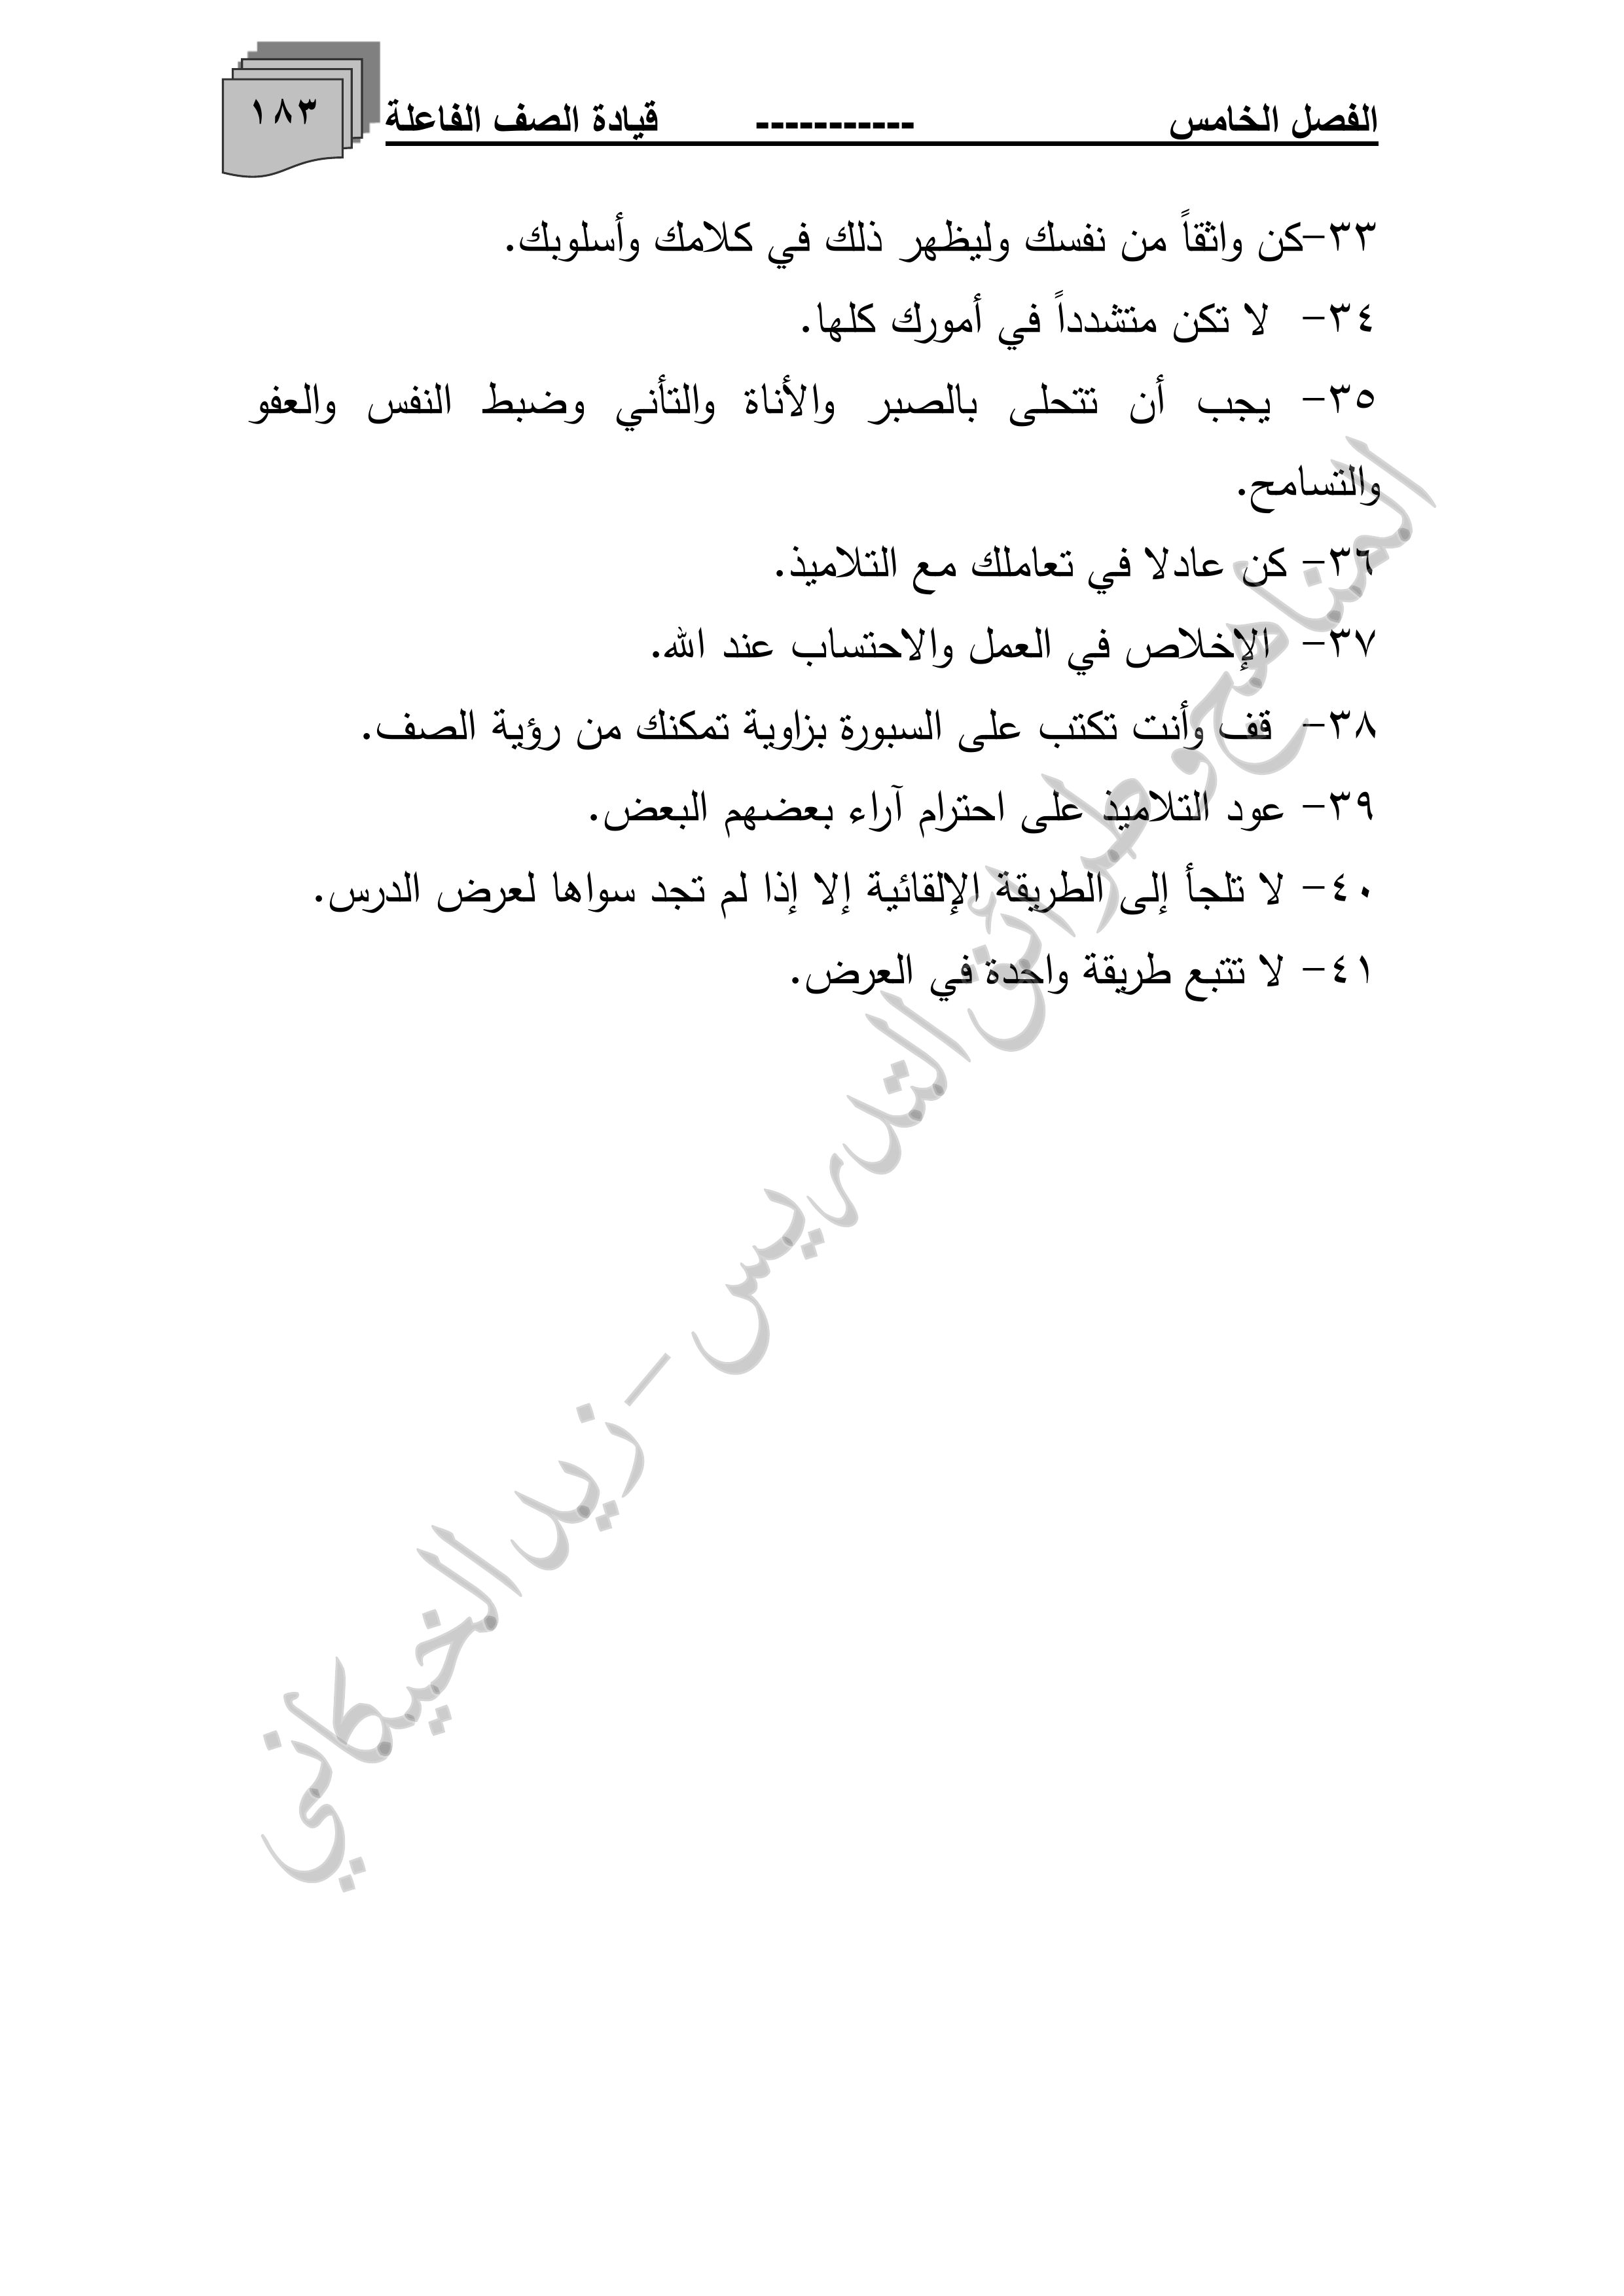 الفصل الخامس ----------- قيادة الصف الفاعلة ١٨٣
٣٣-كن واثقاً من نفسك وليظهر ذلك في كلامك وأسلوبك.
٣٤- لا تكن متشدداً في أمورك كلها.
٣٥- يجب أن تتحلى بالصبر والأناة والتأني وضبط النفس والعفو
والتسامح.
٣٦- كن عادلا في تعاملك مع التلاميذ.
٣٧- الإخلاص في العمل والاحتساب عند الله.
٣٨- قف وأنت تكتب على السبورة بزاوية تمكنك من رؤية الصف.
٣٩- عود التلاميذ على احترام آراء بعضهم البعض.
٤٠- لا تلجأ إلى الطريقة الإلقائية إلا إذا لم تجد سواها لعرض الدرس.
٤١- لا تتبع طريقة واحدة في العرض.
المناهج وطرائق التدريس - زيد الخيكاني